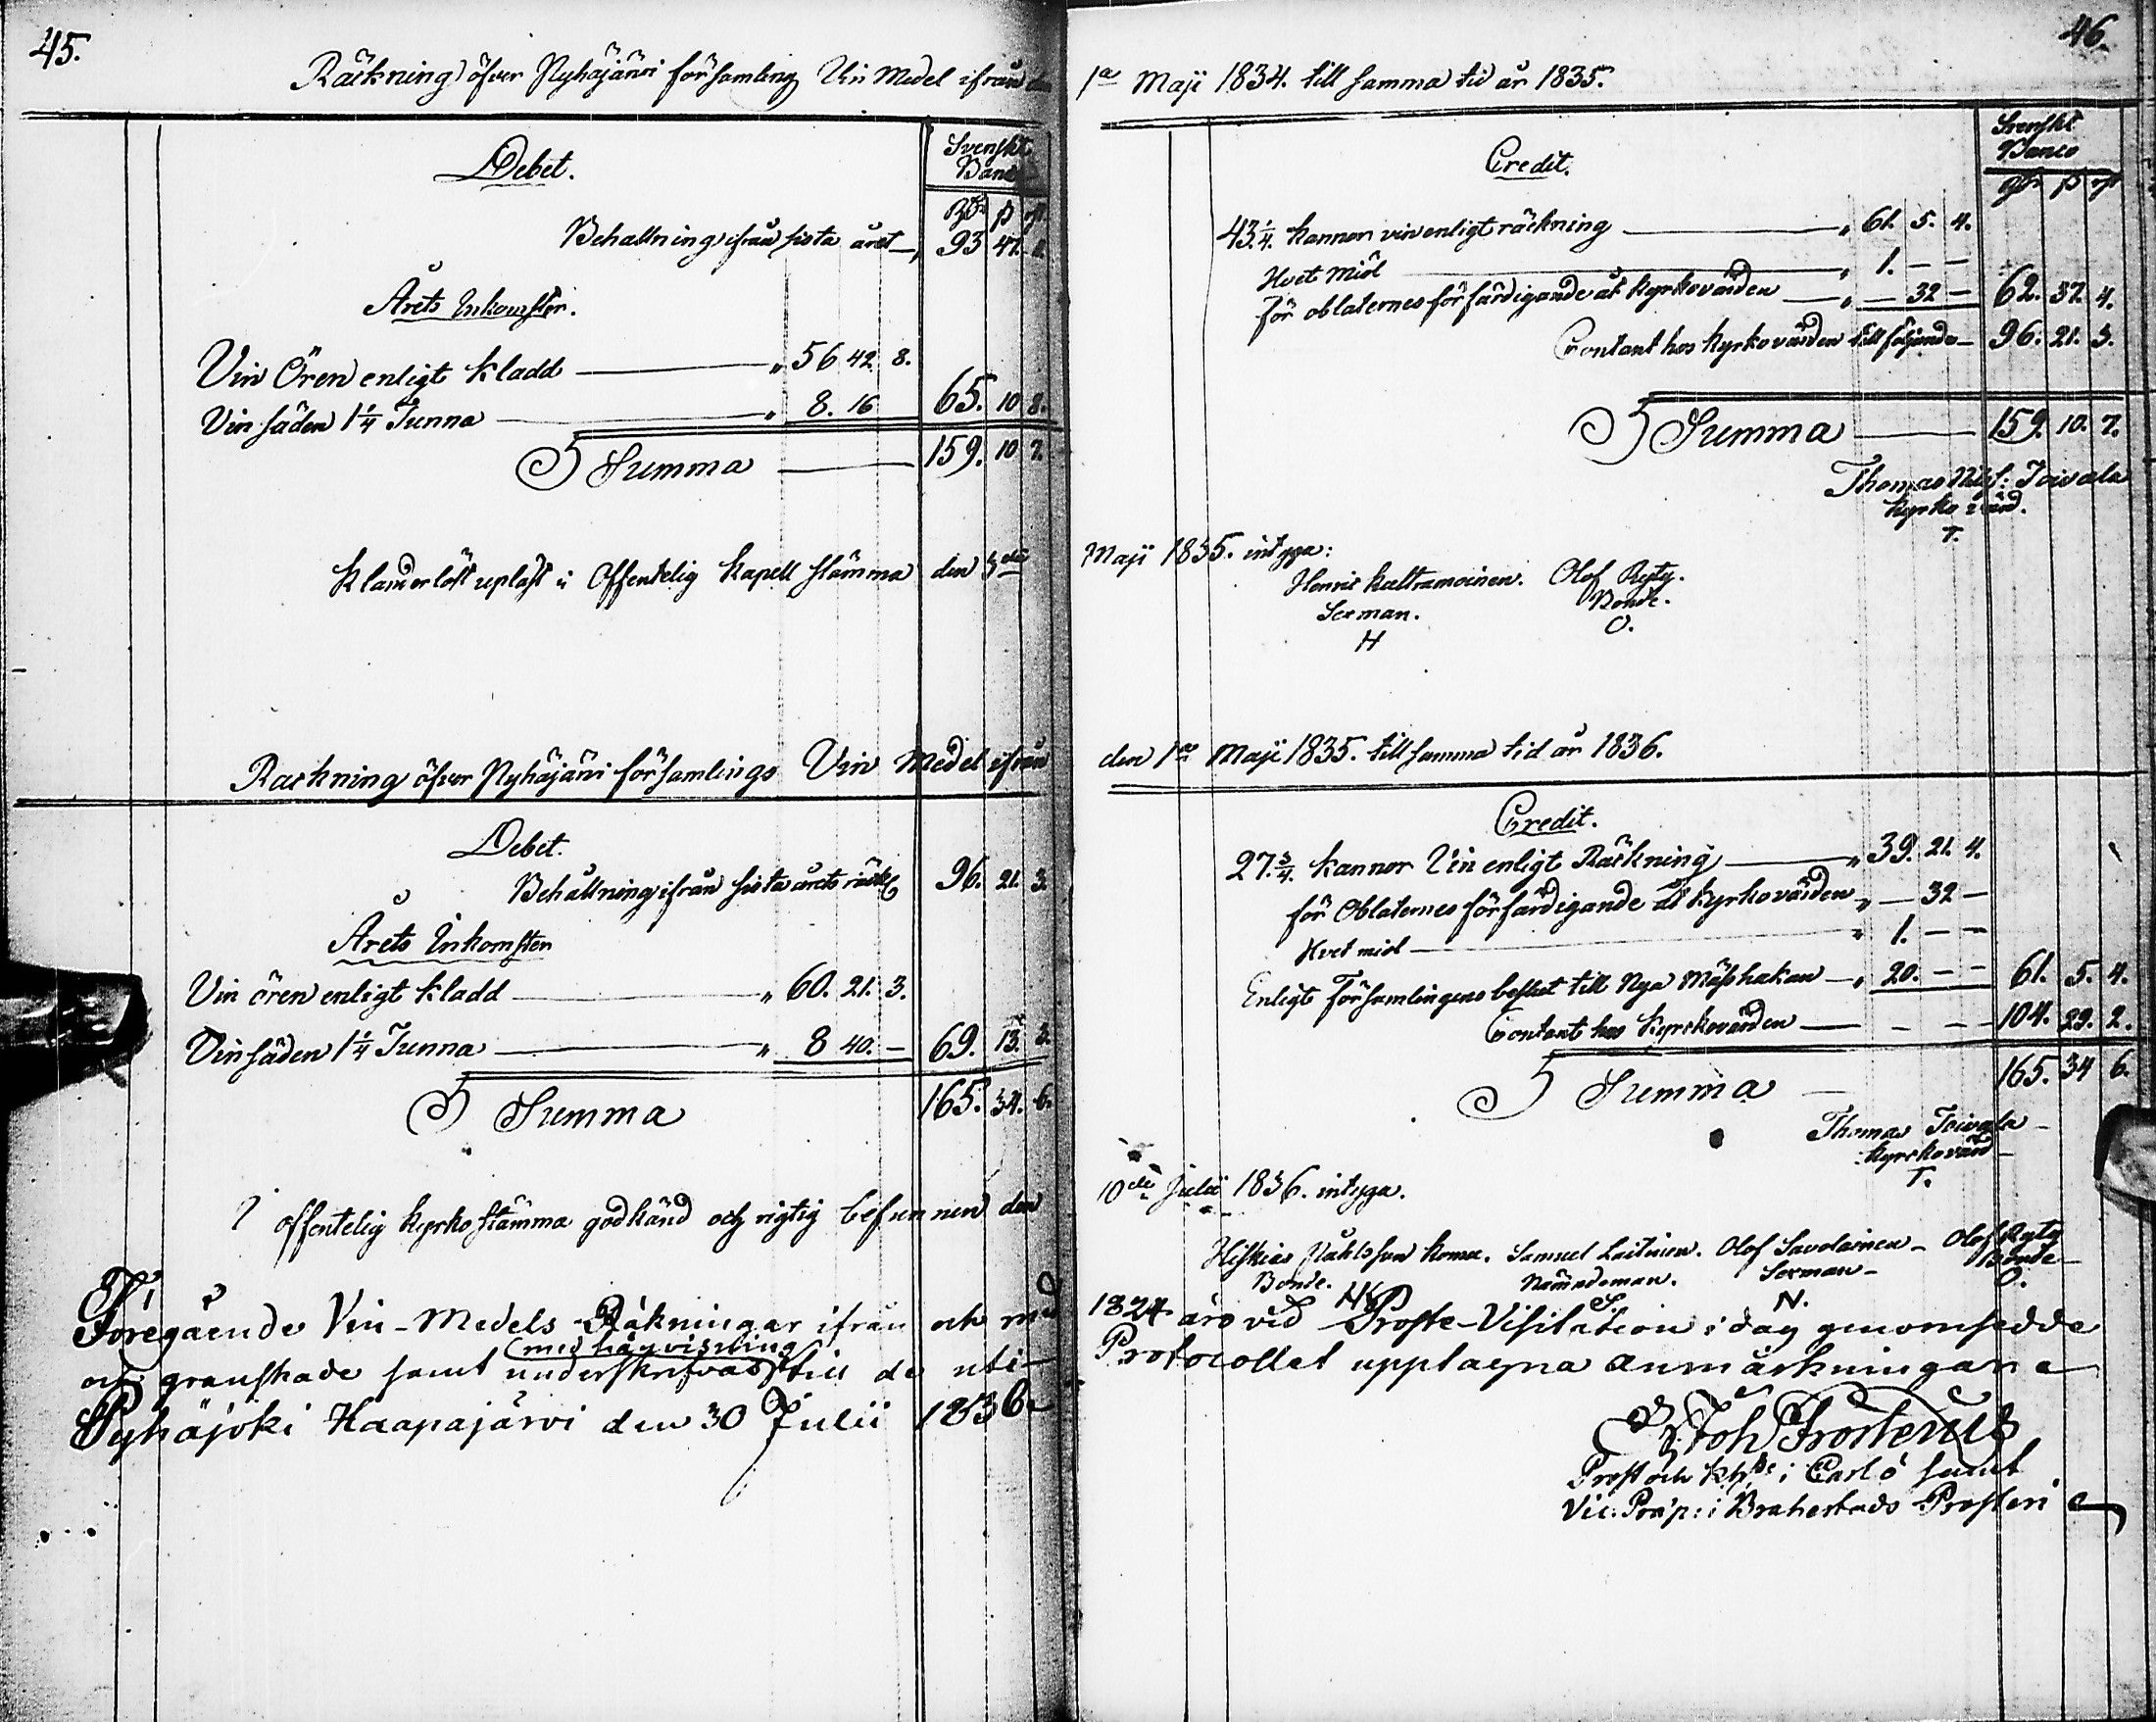 45.
Räckning öfver Pyhäjärvi församling Vin Medel ifrån den
Debet.
Svenskt
Banco
Behallning ifrån sista året 93 47. 11.
Årets Inkomster.
Vin Ören enligt Kladd " 56 42 8.
Vin säden 1 1/4 Tunna " 8. 16 65. 10 8.
Summa 159. 10 7.
Klanderlöst upläst i Offentelig Kapell stämma den 3de
Räckning öfver Pyhäjärvi församlings Vin Medel ifrån
Debet.
Behållning ifrån sista årets räckg 96. 21. 3.
Årets Inkomster
Vin ören enligt Kladd " 60. 21. 3.
Vin säden 1 1/4 Tunna " 8 40. – 69. 13. 3.
Summa 165. 34. 6.
I offentelig Kyrko stämma godkänd och rigtig befunnen den
Föregående Vin-Medels-Räkningar ifrån och med
med hänvisning
och granskade samt underskrifvas till de uti
Pyhäjoki Haapajärvi den 30 Julii 1836
46.
1a Maji 1834. till samma tid år 1835.
Credit.
Svenskt
Banco
43 1/4. Kannor vin enligt räckning " 61. 5. 4.
Hvet miöl " 1. – –
för oblaternes förfärdigande åt Kyrkovärden " – 32 – 62. 37. 4.
Contant hos Kyrkovärden till följande 96. 21. 3.
Summa 159. 10. 7.
Thomas Toivala
Kyrko värd.
T.
Maji 1835. intyga:
Henric Kaltramoinen. Olof Ryty.
Sexman. Bonde.
H O.
den 1a Maji 1835. till samma tid år 1836.
Credit.
27. 3/4. Kannor Vin enligt Räckning " 39. 21. 4.
för Oblaternes förfärdigande åt Kyrkovärden " – 32 –
Hvet miöl " 1. – –
Enligt Församlingens beslut till Nya Mässhakan " 20. – – 61. 5. 4.
Contant hos Kyrckovärden – – – 104. 29. 2.
Summa 165. 34 6.
Thomas Toivala
Kyrckovärd
T.
10de Julii 1836. intyga.
Hiskias Påhlsson Komu. Samuel Laitinen. Olof Savolainen – Olof Ryty
Bonde. Nämndeman. Sexman – Bonde –
H S. N. O.
1824 äro vid Proste-Visitation i dag genomsedde
Protocollet upptagna anmärkningar
Joh Frosterus
Prost och Khde i Carlö samt
Vic. Präp: i Brahestads Prosteri